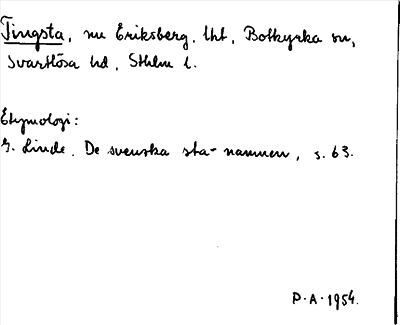 Tingsta, nu Eriksberg, lht, Botkyrka sn,
Svartlösa hd, Sthlm l.
Etymologi:
G. Linde. De svenska sta-namnen, s. 63.
P.A. 1954.